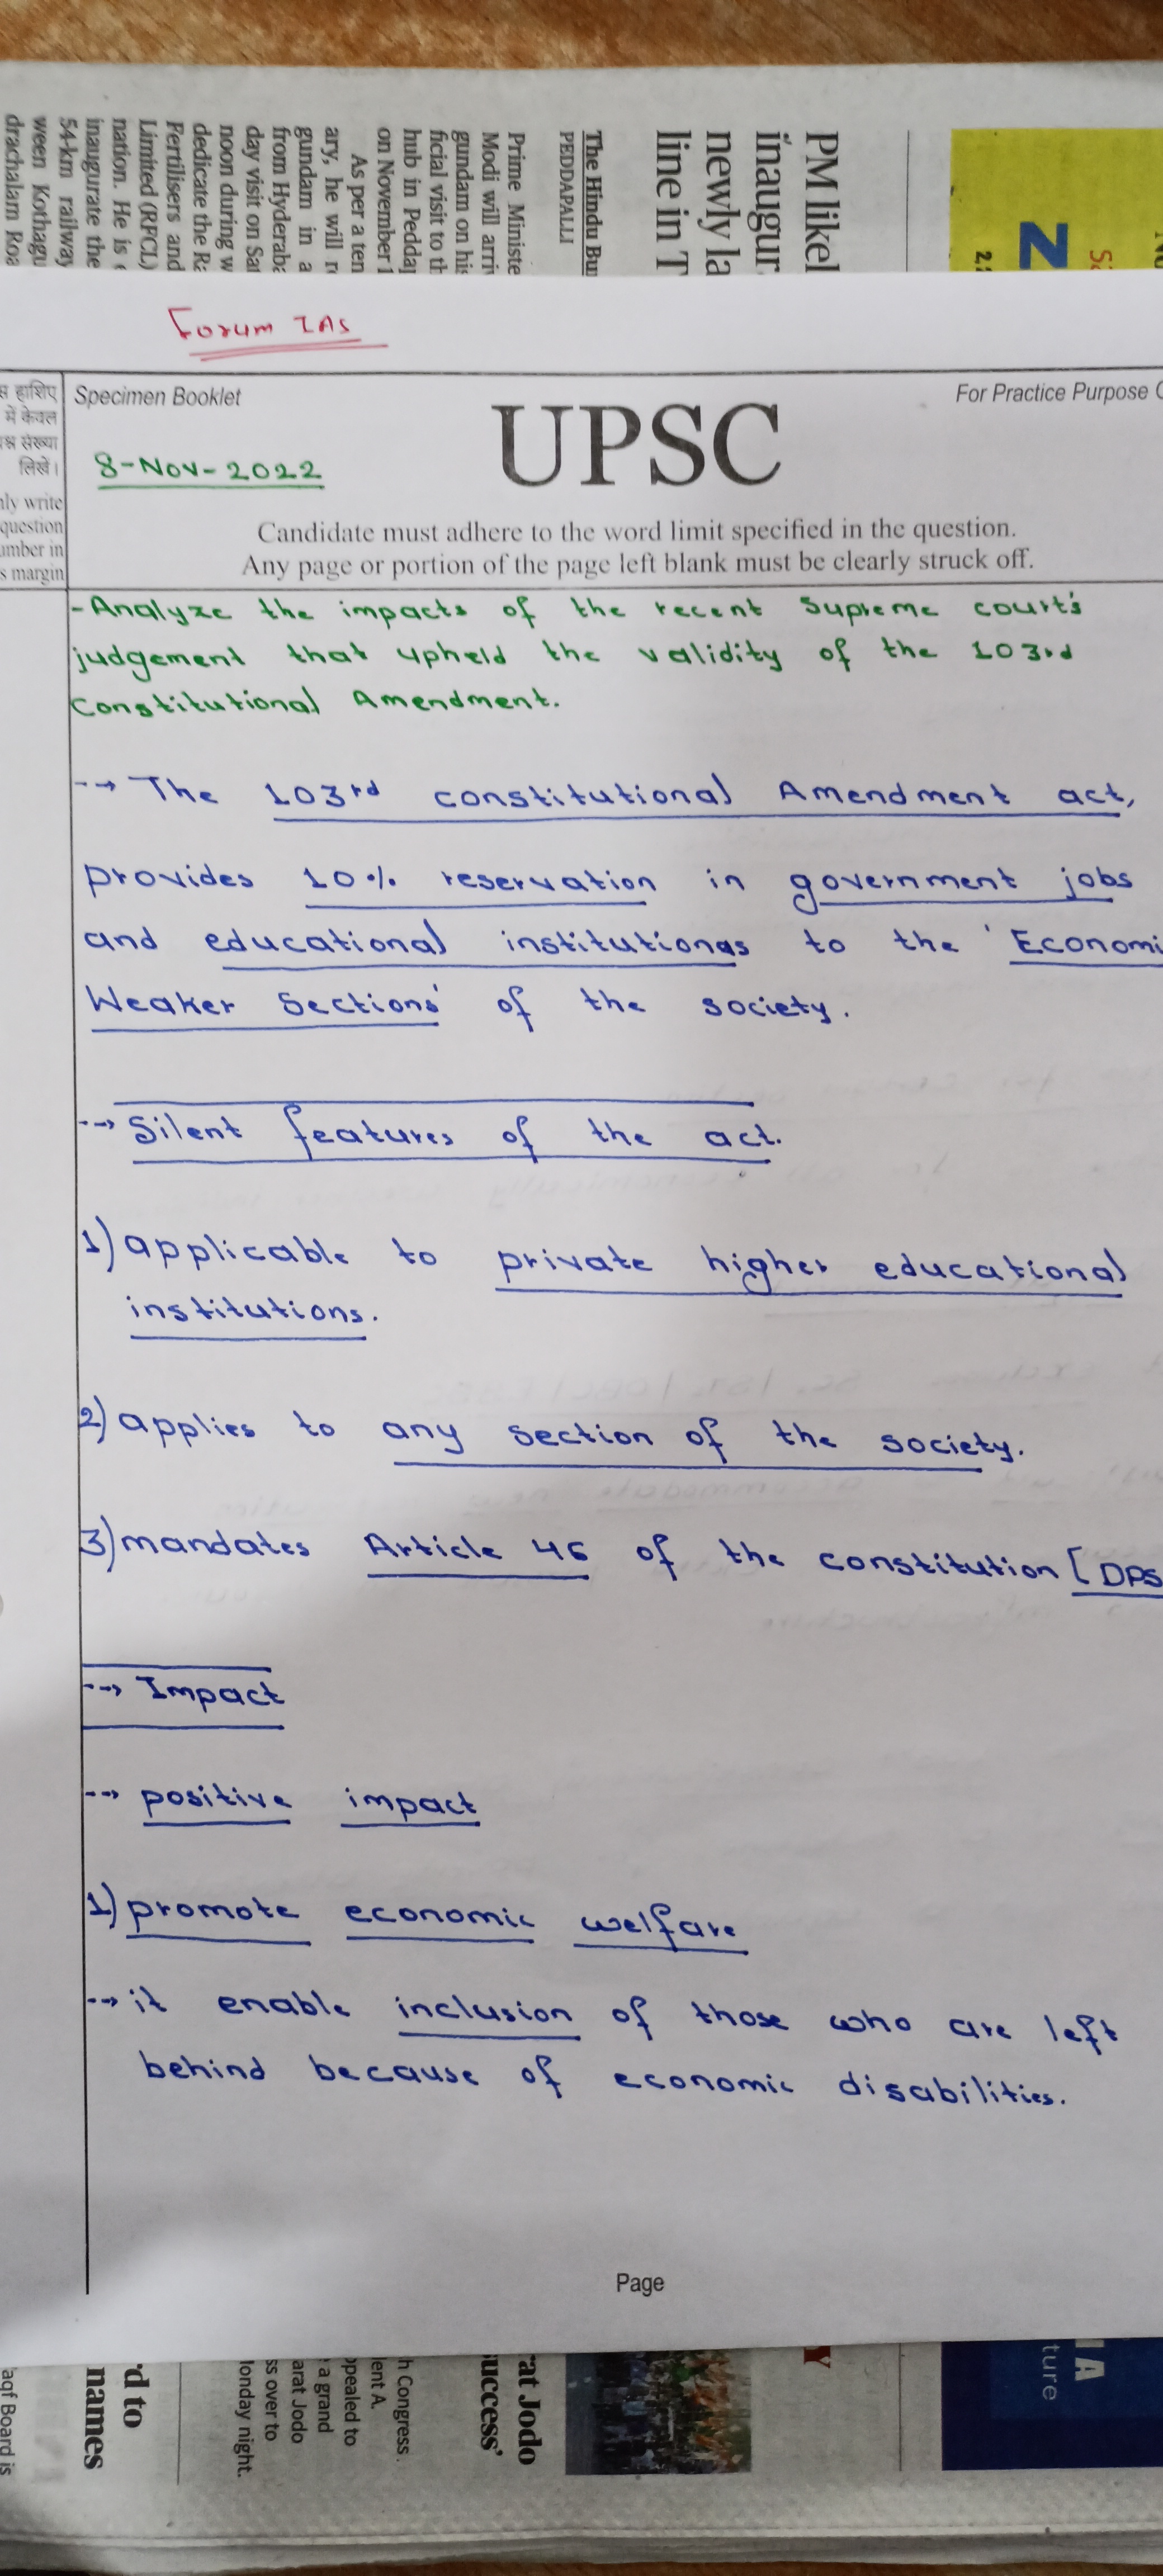 PM likel
inaugur
newly la
line in T
The Hindu Bu
PEDDAPALLI
Prime Ministe
Modi will arri
gundam on his
ficial visit to th
hub in Peddap
on November 1
As per a ten
ary, he will re
gundam in a
from Hyderaba
day visit on Sat
noon during w
dedicate the Ra
Fertilisers and
Limited (RFCL)
nation. He is
inaugurate the
54-km railway
ween Kothagu
drachalam Roa
Z
Forum IAS
हाशिए
में केवल
संख्या
लिखें।
nly write
question
umber in
s margin
Specimen Booklet
For Practice Purpose
UPSC
8-Nov-2022
Candidate must adhere to the word limit specified in the question.
Any page or portion of the page left blank must be clearly struck off.
- Analyze the impacts of the recent Supreme court's
judgement that upheld the validity of the 103rd
Constitutional Amendment.
--> The 103rd constitutional Amendment act,
provides 10% reservation in government jobs
and educational institutionas to the 'Economi
Weaker Sections' of the society.
--> Silent features of the act.
1) applicable to private higher educational
institutions.
2) applies to any section of the society.
3) mandates Article 46 of the constitution [DPS
--> Impact
--> positive impact
1) promote economic welfare
--> it enable inclusion of those who are left
behind because of economic disabilities.
Page
rat Jodo
uccess'
h Congress
lent A.
ppealed to
a grand
arat Jodo
ss over to
londay night.
'd to
names
aqf Board is
Y
A
ture